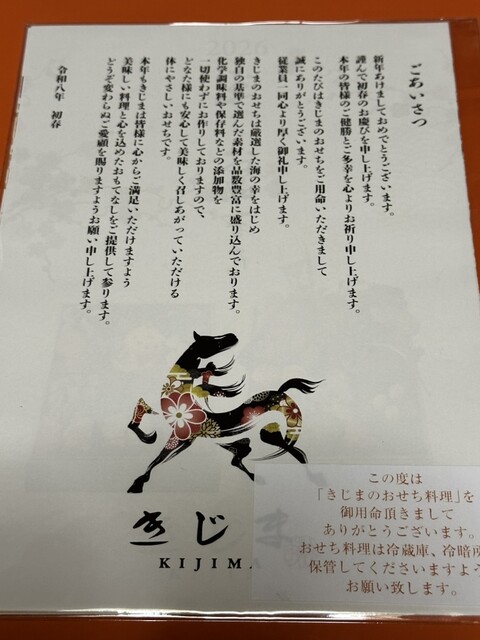 ごあいさつ
新年あけましておめでとうございます。
謹んで初春のお慶びを申し上げます。
本年の皆様のご健勝とご多幸を心よりお祈り申し上げます。
このたびはきじまのおせちをご用命いただきまして
誠にありがとうございます。
従業員一同心より厚く御礼申し上げます。
きじまのおせちは厳選した海の幸をはじめ
独自の基準で選んだ素材を品数豊富に盛り込んでおります。
化学調味料や保存料などの添加物を
一切使わずにお作りしておりますので、
どなた様にも安心して美味しく召しあがっていただける
体にやさしいおせちです。
本年もきじまは皆様に心からご満足いただけますよう
美味しい料理と心を込めたおもてなしをご提供して参ります。
どうぞ変わらぬご愛顧を賜りますようお願い申し上げます。
令和八年 初春
きじま
KIJIMA
この度は
「きじまのおせち料理」を
御用命頂きまして
ありがとうございます。
おせち料理は冷蔵庫、冷暗所
保管してくださいますよう
お願い致します。